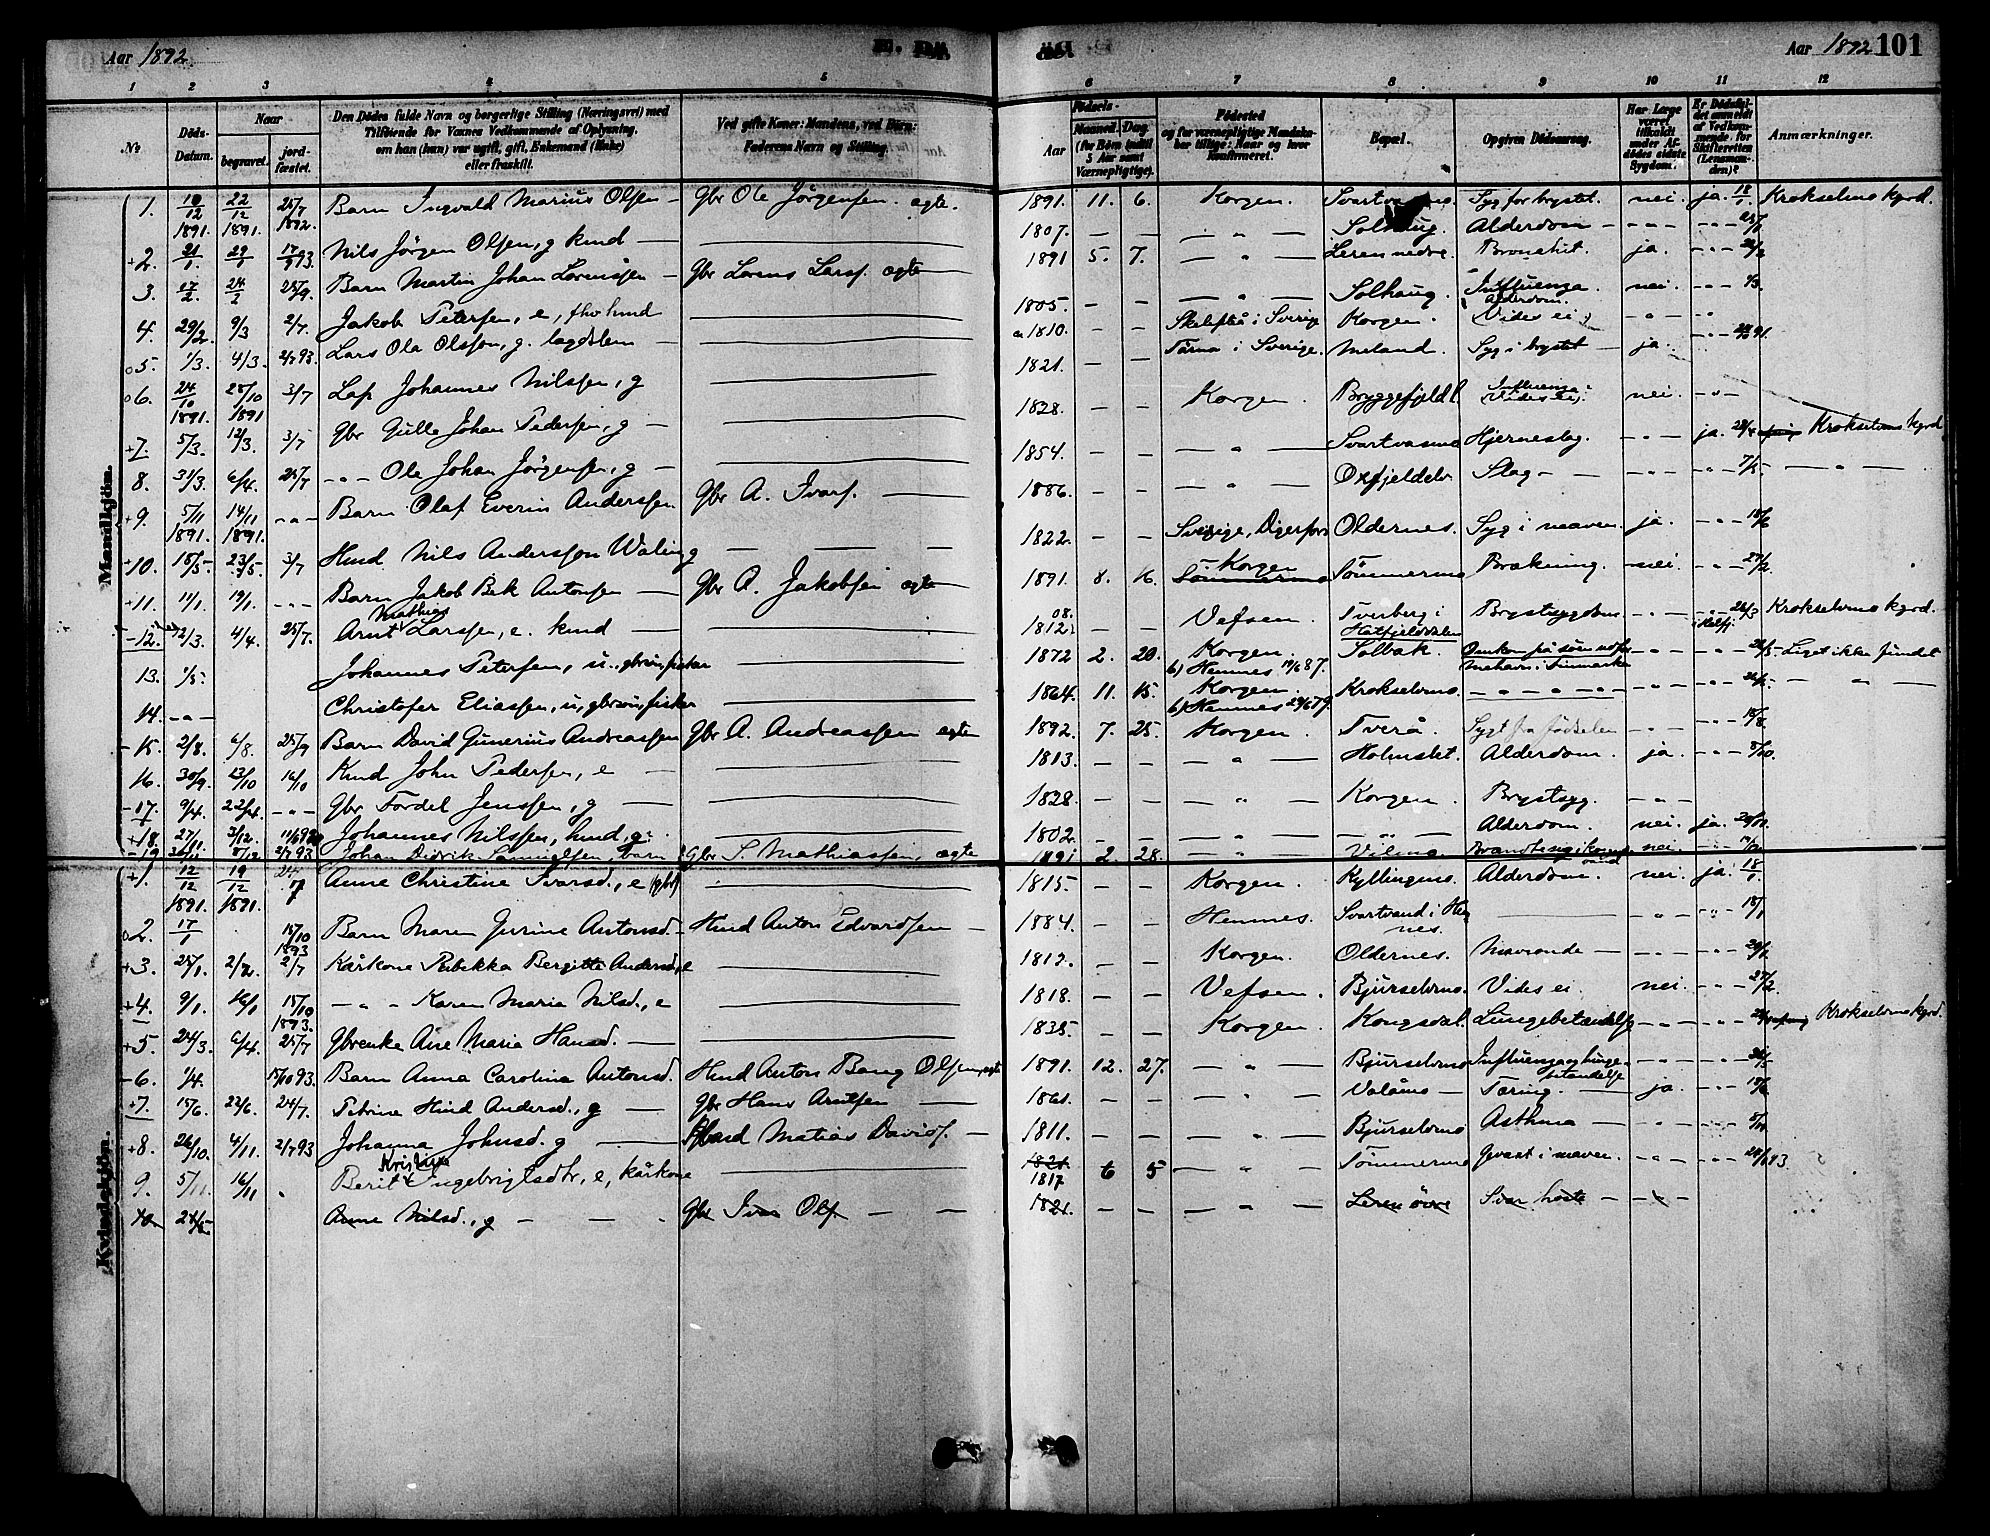 Aar 1892
Aar 1892 101
1 2 3 4 5 6 7 8 9 10 11 12
No
Døds-Datum.
Naar
begravet.
jordfæstet.
Den Dødes fulde Navn og borgerlige Stilling (Næringsvei) med
Tilføiende for Voxnes Vedkommende af Oplysning,
om han (hun) var ugift, gift, Enkemand (Enke)
eller fraskilt.
Ved gifte Koner: Mandens, ved Børn:
Faderens Navn og Stilling.
Aar
Fødsels-
Maaned. Dag.
(for Børn indtil
5 Aar samt
Værnepligtige).
Fødested
og for værnepligtige Mandskaber tillige: Naar og hvor
Konfirmeret.
Bopæl.
Opgiven Dødsaarsag.
Har Læge
været
tilkaldt
under Afdødes sidste
Sygdom.
Er Dødsfaldet anmeldt
af Vedkommende for
Skifteretten
(Lensmanden)?
Anmærkninger.
Mandkjøn.
1. 22/12 1891. 25/7 1892. Barn Ingvald Marius Olsen – Gbr Ole Jørgensen ægte. 1891. 11. 6. Korgen. Syg for brystet. nei. ja. 18/1 Krokselvmo kgrd.
+2. 21/1. 29/1 Nils Jørgen Olsen, g kmd — 1807. — — — " — Solhaug. Alderdom –
3. 17/2. 24/2 25/9. Barn Martin Johan Lorentsen – Gbr Lorens Lars. ægte 1891 5. 7. — " — Leren nedre. Bronchit. ja.
4. 29/2. 9/3 2/7. Jakob Petersen, e, 1805. — — — " — Solhaug. Influenza. Alderdom. nei.
5. 1/3. 4/3. 2/7 93. Lars Ola Olsson, g. lægdslem — 1810. — — Skelefteå i Sverige Korgen. Vides ei.
6. 24/10 1891. 28/10 1891 3/7 Lap Johannes Nilsen, g 1821. — — Tärna i Sverige. Meland. Syg i brystet — ja.
+7. 5/3. 12/3. 3/7 Gbr Gulle Johan Pedersen, g — 1828. — — Korgen. Bryggefjeld. Influenza. Vides ei. nei.
8. 31/3. 6/4. 25/7 Ole Johan Jørgensen, g — 1854. — — — " — Svartvasmo Hjerneslag. ja. Krokselvmo kgrd
+9. 5/11 1891. 14/11 1891. Barn Olaf Everin Andersen Gbr A. Ivars. — 1886. — — — " — Oxfjeldelv. Slag –
+10. 15/5. 23/5. 3/7 Hmd Nils Andersson Waling 1822. Sverige, Oldernes. Syg i maven. ja.
+11. 11/1. 19/1. Barn Jakob Bek Antonsen — Gbr A. Jakobsen ægte 1891. 8. 16. Korgen Tømmermo Tømmermo Brækning. nei.
12. 2/3. 4/4. 25/7. Arnt Mathias Larssen, e. kmd — 1812. 08. — — Vefsen. Tverberg i Hatfjelddalen Brystsygdom Krokselvmo kgrd.
13. 1/5. Johannes Petersen, u. gbrsøn, fisker 1872 2. 20. Korgen. b) Hemnes 19/6 87. Solbak. Omkom på søen Mehavn i Finmarken Liget ikke fundet
14. Christofer Eliassen, u, gbrsøn, fisker 1864. 11. 15. Korgen. b) Hemnes 29/6 79. Krokselvmo.
15. 2/8. 6/8. 25/9 Barn David Gunerius Andreassen Gbr A. Andreassen ægte 1892. 7. 25. Korgen. Tverå. Sygt fra fødselen
16. 30/9. 13/10 16/10 Kmd John Pedersen, e — 1813. — — — " — Holmslet. Alderdom. ja.
17. 9/4. 22/4. Gbr Fordel Jenssen, g — 1828. — — — " — Korgen. Brystsyg.
+18. 27/11. 3/12. Johannes Nilssen, kmd, g. 1802. — — — " — Alderdom. nei. ja.
19. 2/7 93 Johan Didrik Samuelsen, barn Gbr S. Mathiassen, ægte 1891 2. 28. — " — nei.
Kvindekjøn.
+1. 12/12 1891. 19/12 1891. 24/7 Anne Christine Ivarsd., e (gbr) 1815. — — Korgen. Kyllingmo. Alderdom. nei. ja. 18/1
2. 17/1 15/10 1893 Barn Maren Jurine Antonsd. – Hmd Anton Edvardsen – 1884. — — Hemnes. Svartvand i Hemnes.
+3. 25/1. 2/2. 2/7 Kårkone Rebekka Bergitte Andersd., e 1812. — — Korgen. Oldernes. Mavsonde —
+4. 9/1. 16/1 15/10 1893. — " — Karen Maria Nilsd., e 1818. — — Vefsen. Bjurselvmo. Vides ei. nei. 27/2
+5. 24/3. 6/4. 25/7 Gbrenke Ane Maria Hansd. — 1835. — — Korgen. Kongsdal. Lungebetændelse Krokselvmo kgrd.
6. 1/4. 15/10 93. Barn Anna Carolina Antonsd. Hmd Anton Bang Olsen, ægte 1891. 12. 27. — " — Bjurselvmo Influenza og lungebetændelse
+7. 15/6. 22/6. 24/7. Petrine Hmd Andersd., g — Gbr Hans Arntsen — 1861. — — — " — Valåmo — Tæring. — ja.
+8. 26/10. 4/11. 2/7 93 Johanna Johnsd. g — Matias Davids. – 1811. — — — " — Bjurselvmo Asthma —
9. 5/11. 16/11 Berit Kristine Ingebrigtsdtr, e, kårkone 1821 1817 6 5 — " — Tømmermo i maven.
10. 24/5 Anne Nilsd., g – – – Gbr Ivar Ols. – – 1821. Leren øvre Svær hoste –